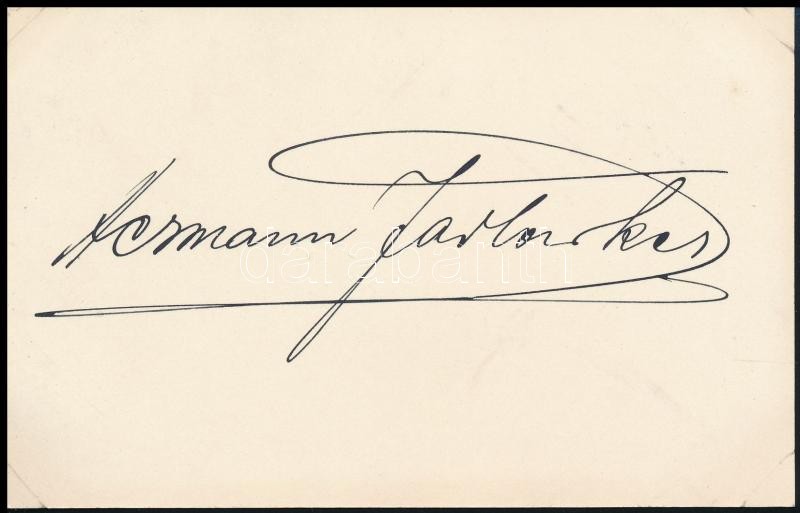 Hermann Jadlowker
darabanth